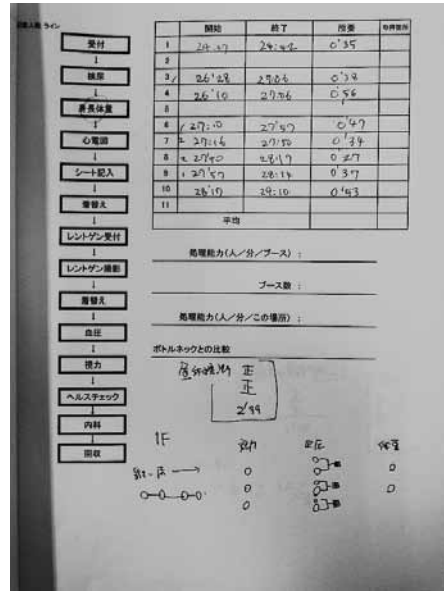 受付
検尿
身長体重
心電図
シート記入
着替え
レントゲン受付
レントゲン撮影
着替え
血圧
視力
ヘルスチェック
内科
回収
開始 終了 所要
1 24:42 0'35
2
3 26'28 27:06 0'38
4 26'10 27:06 0'56
5
6 27:10 27'57 0'47
7 27:16 27:50 0'34
8 27'50 28:17 0'27
9 27'57 28:14 0'37
10 28'17 29:10 0'53
11
平均
処理能力(人/分/ブース):
ブース数:
処理能力(人/分/この場所):
ボトルネックとの比較
正
正
2'99
1F
視力 血圧